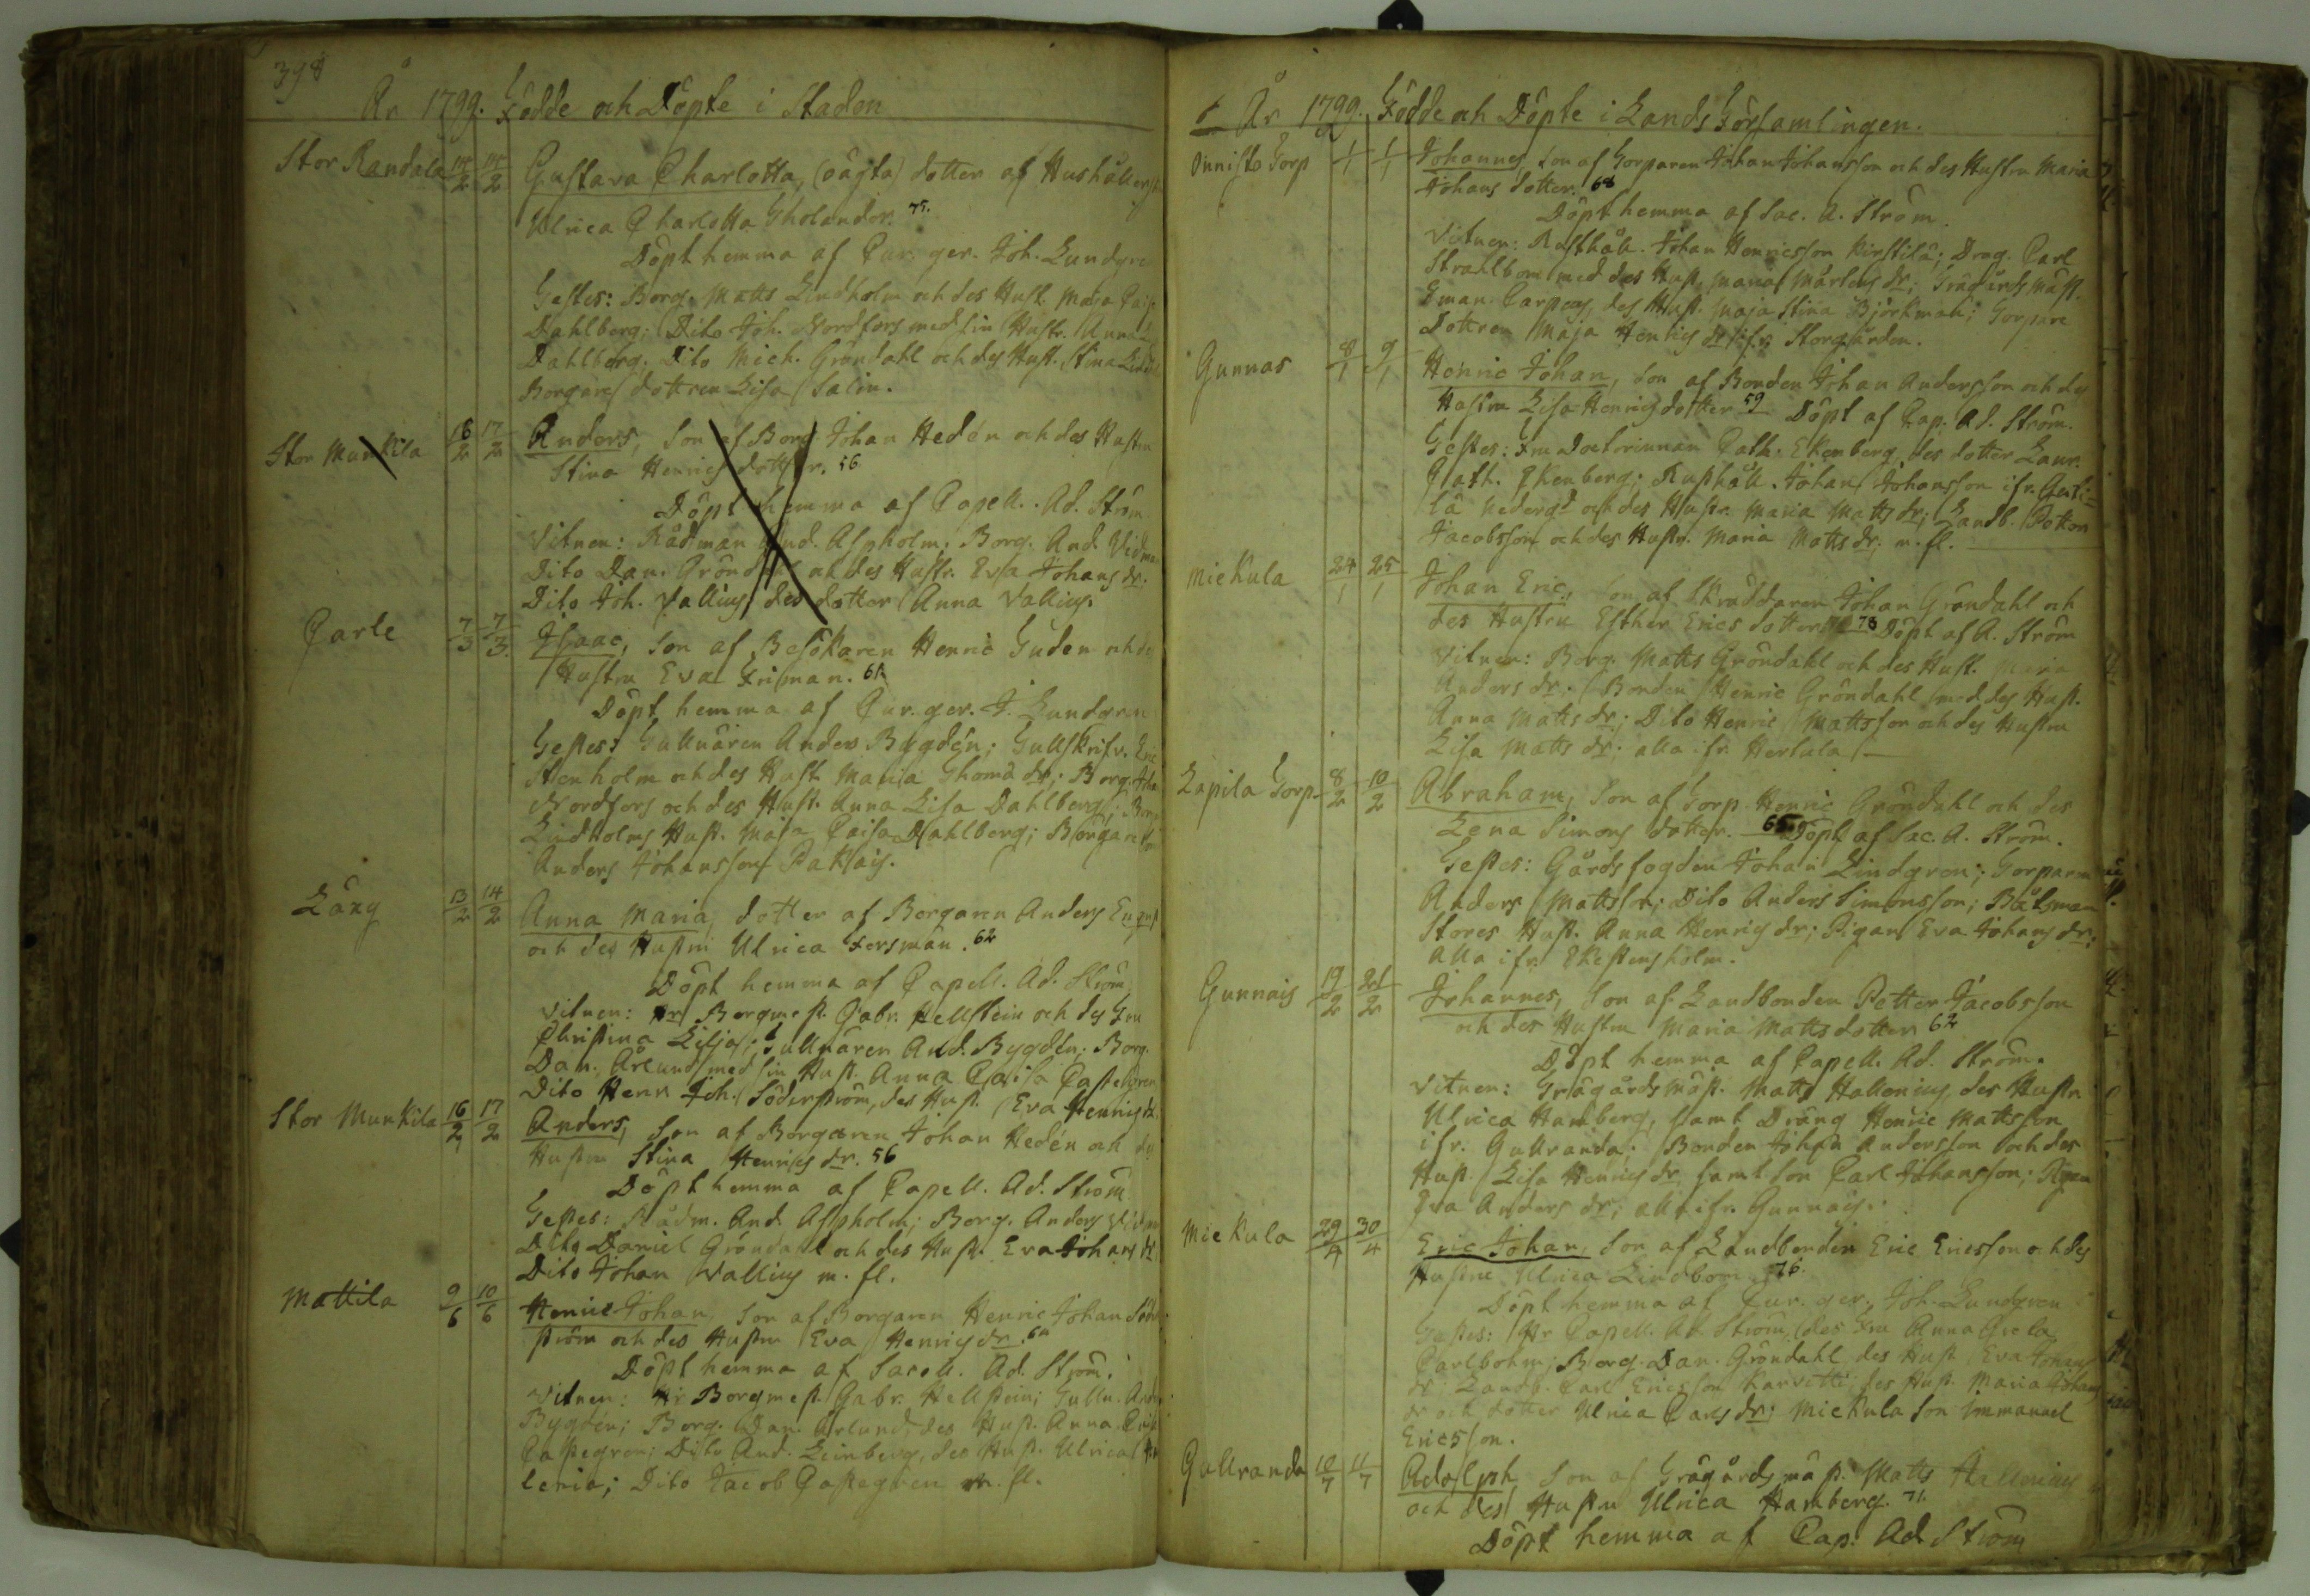 398
År 1799. Födde och Döpte i Staden
Stor Randala 14/2 14/2 Gustava Charlotta, (oägta) dotter af Hushållerskan
Ulrica Charlotta Tholander. 75.
Döpt hemma af Cur. ger. Joh. Lundgren
Testes: Borg. Matts Lindholm och des Hust. Maja Caisa
Dahlberg; Dito Joh. Nordfors med sin Hustr. Anna
Dahlberg. Dito Mich. Gröndahl och des Hust. Stina
Borgare dottren Lisa Salin.
Stor Munkila 16/2 17/2 Anders, Son af Borg. Johan Hedén och des Hustru
Stina Henrics dotter. 56.
Döpt hemma af Capell. Ad. Ström
Vitnen: Rådman And. Aspholm; Borg. And. Vidman
Dito Dan. Gröndahl och des Hustr. Eva Johans dr.
Dito Joh. Vallius, des dotter Anna Vallius.
Carle 7/3 7/3. Isaac, Son af Besökaren Henric Tuden och des
Hustru Eva Friman. 61.
Döpt hemma af Cur. ger. J. Lundgren
Testes: Tullnären Anders Bygdén; Tullskrifv. Eric
Stenholm och des Hust. Maria Thomæ dr; Borg. Johan
Nordfors och des Hust. Anna Lisa Dahlberg; Borg.
Lindholms Hust. Maja Caisa Dahlberg; Borgare
Anders Johansson
Läng 13/2 14/2 Anna Maria, dotter af Borgaren Anders
och des Hustru Ulrica Forsman. 62
Döpt hemma af Capell. Ad. Ström
Vitnen: Hr Borgmest. Gabr. Hellstein och des Fru
Christina Lilja; Tullnären And. Bygdén; Borg.
Dan. Arlund med sin Hust. Anna Caisa Castegren
Dito Henr. Joh. Söderström, des Hust. Eva Henrics dr.
Stor Munkila 16/2 17/2 Anders, Son af Borgaren Johan Hedén och des
Hustru Stina Henrics dr. 56
Döpt hemma af Capell. Ad. Ström
Testes: Rådm. And. Aspholm; Borg. Anders Vidman
Dito Daniel Gröndahl och des Hust. Eva Johans dr
Dito Johan Wallius m. fl.
Mattila 9/6 10/6 Henric Johan, Son af Borgaren Henric Johan Söder-
ström och des Hustru Eva Henrics dr.
Döpt hemma af Sacell. Ad. Ström.
Vitnen: Hr Borgmest. Gabr. Hellstein; Tulln. Anders
Bygdén; Borg. Dan. Arlund, des Hust. Anna Caisa
Castegren; Dito And. Leinberg, des Hust. Ulrica
lenia; Dito Jacob Castegren m. fl.
År 1799. Födde och Döpte i Lands Församlingen.
Onnisto Torp 1/1 1/1 Johannes, Son af Torparen Johan Johansson och des Hustru Maria
Johans dotter. 68
Döpt hemma af Sac. A. Ström.
Vitnen: Rusthåll. Johan Henricsson Kirstilä; Drag. Carl
Strahlbom med des Hust. Maria Mårtens dr; Trägårds mäst.
Eman. Carpens, des Hust. Maja Stina Björkman; Torpare
Dottren Maja Henrics dr ifr. Storgården.
Gunnas 8/1 9/1 Henric Johan, Son af Bonden Johan Andersson och des
Hustru Lisa Henrics dotter 59 Döpt af Cap. Ad. Ström.
Testes: Fru Doctorinnan Cath. Ekenberg, des dotter Laur.
Cath. Ekenberg; Rusthåll. Johan Johansson ifr. Gerti-
lä Nederg. och des Hustr. Maria Matts dr; Landb. Petter
Jacobsson och des Hustr. Maria Matts dr. m. fl.
Miekula 24/1 25/1 Johan Eric, Son af Skräddaren Johan Gröndahl och
des Hustru Esther Erics dotter 78 Döpt af A. Ström
Vitnen: Borg. Matts Gröndahl och des Hust. Maria
Anders dr. Bonden Henric Gröndahl med des Hust.
Anna Matts dr; Dito Henric Mattsson och des Hustru
Lisa Matts dr. alla ifr. Hertala
Lapila Torp 8/2 10/2 Abraham, Son af Torp. Henric Gröndahl och des
Lena Simons dotter. 65 Döpt af Sac. A. Ström.
Testes: Gårds fogden Johan Lindgren; Torparen
Anders Mattsson; Dito Anders Simonsson; Båtsman
Stores Hust. Anna Henrics dr; Pigan Eva Johans dr;
Alla ifr. Ekestensholm.
Gunnais 19/2 21/2 Johannes, Son af Landbonden Petter Jacobsson
och des Hustru Maria Matts dotter 62
Döpt hemma af Capell. Ad. Ström.
Vitnen: Trägårdsmäst. Matts Hallenius, des Hustr.
Ulrica Hamberg, samt Dräng Henric Mattsson
ifr. Gullranda; Bonden Johan Andersson och des
Hust. Lisa Henrics dr samt Son Carl Johansson; Pigan
Eva Anders dr, alla ifr. Gunnais.
Miekula 29/4 30/4 Eric Johan, Son af Landbonden Eric Ericsson och des
Hustru Ulrica Lindbom. 76.
Döpt hemma af Cur. ger. Joh. Lundgren
Testes: Hr Capell. Ad. Ström, des Fru Anna Greta
Carlbohm; Borg. Dan. Gröndahl des Hust Eva Johans
dr Landb. Carl Ericsson Karvetti des Hust. Maria Johans
dr och dotter Ulrica Carls dr; Miekula Son Immanuel
Ericsson.
Gullranda 10/7 11/7 Adolph, Son af Trägårdsmäst. Matts Hallenius
och des Hustru Ulrica Hamberg. 71.
Döpt hemma af Cap. Ad Ström